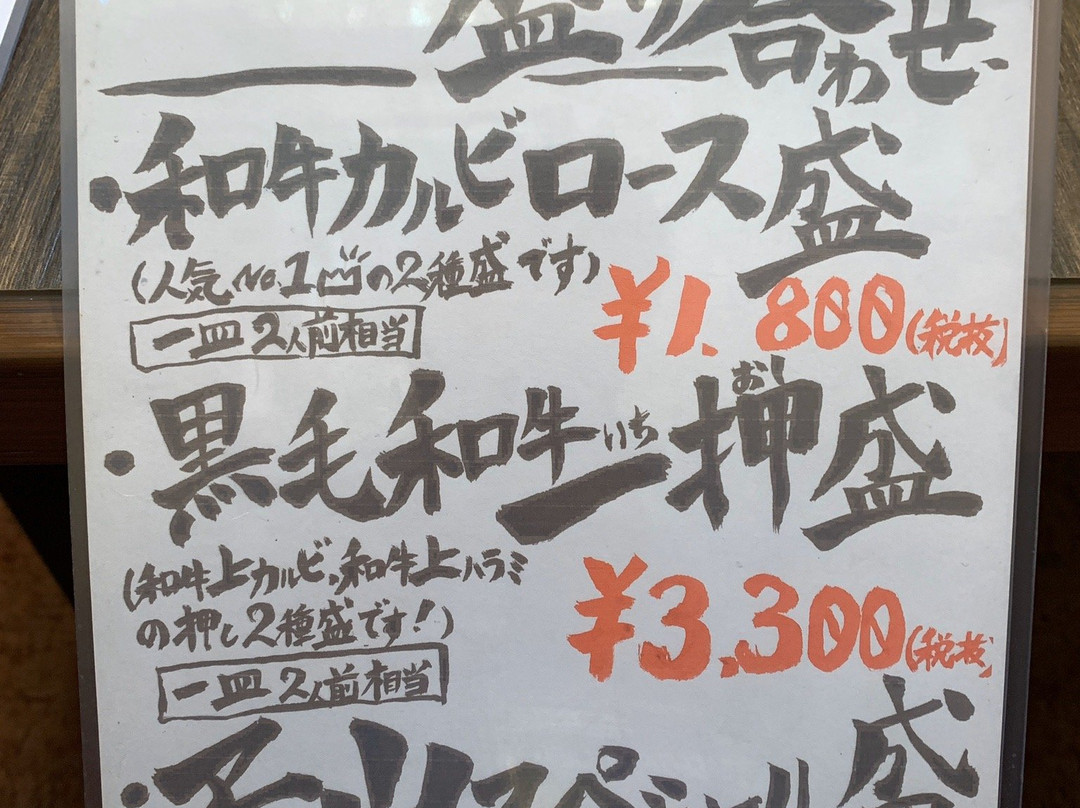 盛り合わせ
・和牛カルビロース盛
(人気No.1の2種盛です)
¥1.800(税抜)
一皿2人前相当
・黒毛和牛一押盛
いち
おし
(和牛上カルビ、和牛上ハラミ
の押し2種盛です!)
¥3.300(税抜)
一皿2人前相当
スペシャル盛